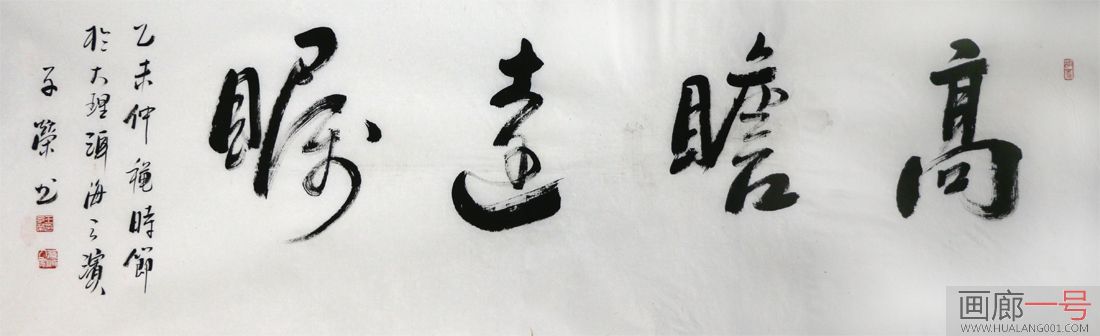 高瞻遠瞩
乙未仲穐時節
於大理洱海之濱
子榮书
画廊一号
WWW.HUALANG001.COM